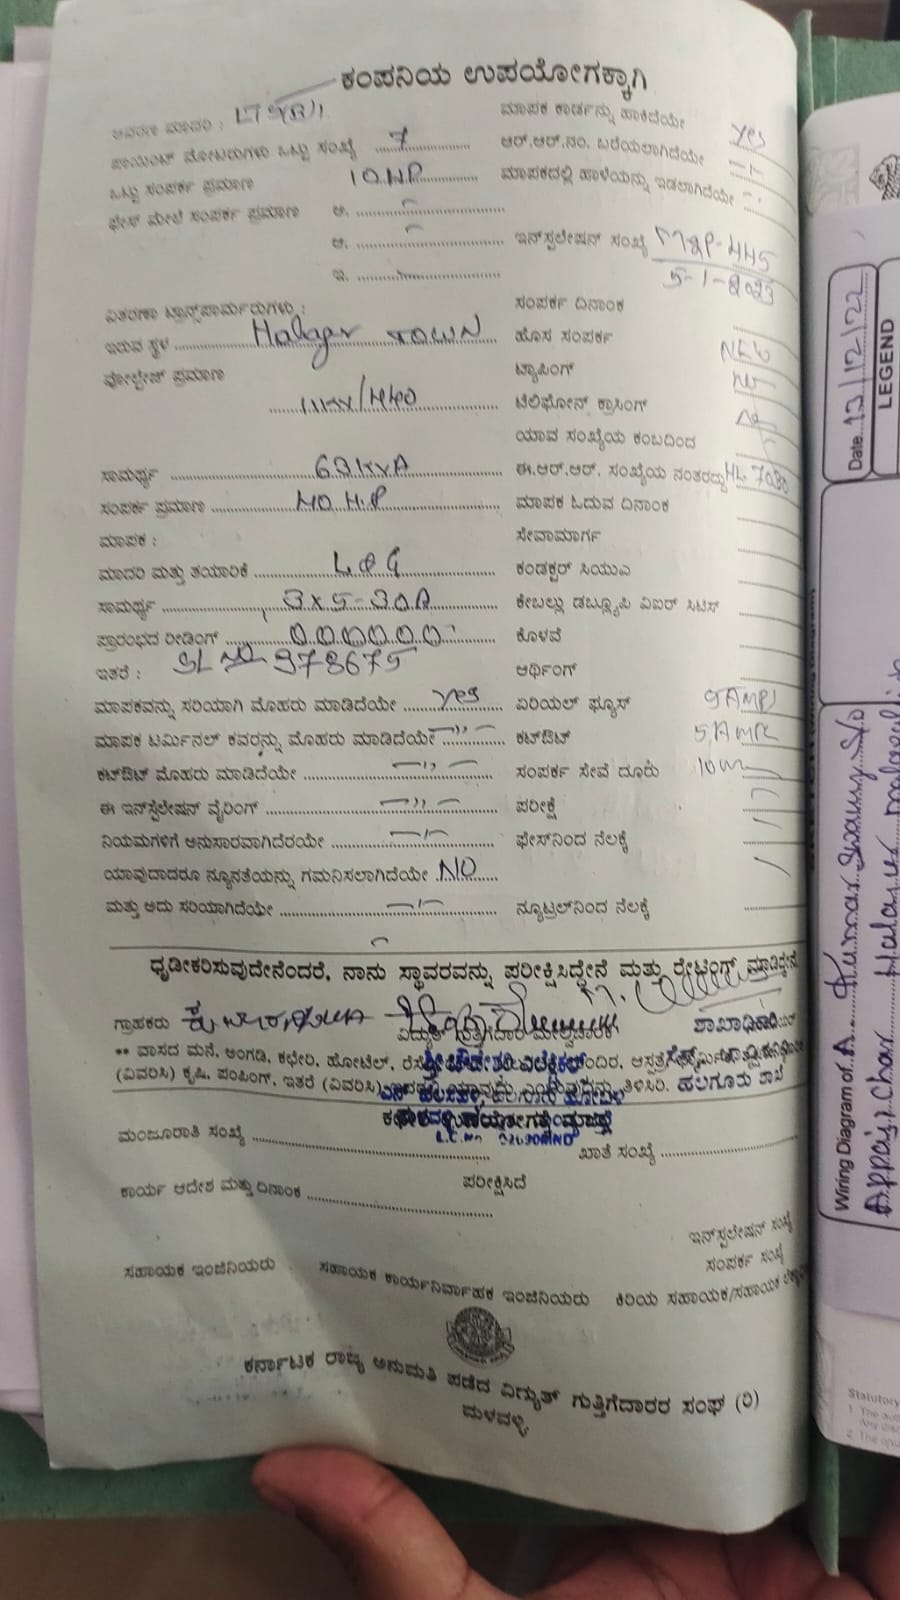 ಕಂಪನಿಯ ಉಪಯೋಗಕ್ಕಾಗಿ
ಆವರಣ ಮಾದರಿ :
ಪಾಯಿಂಟ್ ಮೋಟರುಗಳು ಒಟ್ಟು ಸಂಖ್ಯೆ 7
ಒಟ್ಟು ಸಂಪರ್ಕ ಪ್ರಮಾಣ 10 HP
ಫೇಸ್ ಮೇಲೆ ಸಂಪರ್ಕ ಪ್ರಮಾಣ ಅ.
ಆ.
ಇ.
ವಿತರಣಾ ಟ್ರಾನ್ಸ್‌ಫಾರ್ಮರುಗಳು :
ಇರುವ ಸ್ಥಳ Halagur TOWN
ವೋಲ್ಟೇಜ್ ಪ್ರಮಾಣ
11KV/440
ಸಾಮರ್ಥ್ಯ 63 KVA
ಸಂಪರ್ಕ ಪ್ರಮಾಣ 40 H.P
ಮಾಪಕ :
ಮಾದರಿ ಮತ್ತು ತಯಾರಿಕೆ L&G
ಸಾಮರ್ಥ್ಯ 3x5-30A
ಪ್ರಾರಂಭದ ರೀಡಿಂಗ್ 000000
ಇತರೆ : SL NO 978675
ಮಾಪಕವನ್ನು ಸರಿಯಾಗಿ ಮೊಹರು ಮಾಡಿದೆಯೇ yes
ಮಾಪಕ ಟರ್ಮಿನಲ್ ಕವರನ್ನು ಮೊಹರು ಮಾಡಿದೆಯೇ —"—
ಕಟ್‌ಔಟ್ ಮೊಹರು ಮಾಡಿದೆಯೇ —"—
ಈ ಇನ್‌ಸ್ಟಲೇಷನ್ ವೈರಿಂಗ್ —"—
ನಿಯಮಗಳಿಗೆ ಅನುಸಾರವಾಗಿದೆರಯೇ —"—
ಯಾವುದಾದರೂ ನ್ಯೂನತೆಯನ್ನು ಗಮನಿಸಲಾಗಿದೆಯೇ NO
ಮತ್ತು ಅದು ಸರಿಯಾಗಿದೆಯೇ —"—
ಮಾಪಕ ಕಾರ್ಡನ್ನು ಹಾಕಿದೆಯೇ yes
ಆರ್.ಆರ್.ನಂ. ಬರೆಯಲಾಗಿದೆಯೇ —"—
ಮಾಪಕದಲ್ಲಿ ಹಾಳೆಯನ್ನು ಇಡಲಾಗಿದೆಯೇ
ಇನ್‌ಸ್ಟಲೇಷನ್ ಸಂಖ್ಯೆ
5-1-2023
ಸಂಪರ್ಕ ದಿನಾಂಕ
ಹೊಸ ಸಂಪರ್ಕ NEW
ಟ್ಯಾಪಿಂಗ್
ಟೆಲಿಫೋನ್ ಕ್ರಾಸಿಂಗ್
ಯಾವ ಸಂಖ್ಯೆಯ ಕಂಬದಿಂದ
ಈ.ಆರ್.ಆರ್. ಸಂಖ್ಯೆಯ ನಂತರದ್ದು HL 7030
ಮಾಪಕ ಓದುವ ದಿನಾಂಕ
ಸೇವಾಮಾರ್ಗ
ಕಂಡಕ್ಟರ್ ಸಿಯುಎ
ಕೇಬಲ್ಲು ಡಬ್ಲ್ಯೂಪಿ ವಿಐರ್ ಸಿಟಿಸ್
ಕೊಳವೆ
ಆರ್ಥಿಂಗ್
ಏರಿಯಲ್ ಫ್ಯೂಸ್
ಕಟ್‌ಔಟ್
ಸಂಪರ್ಕ ಸೇವೆ ದೂರು
ಪರೀಕ್ಷೆ
ಫೇಸ್‌ನಿಂದ ನೆಲಕ್ಕೆ
ನ್ಯೂಟ್ರಲ್‌ನಿಂದ ನೆಲಕ್ಕೆ
ಧೃಡೀಕರಿಸುವುದೇನೆಂದರೆ, ನಾನು ಸ್ಥಾವರವನ್ನು ಪರೀಕ್ಷಿಸಿದ್ದೇನೆ ಮತ್ತು ರೇಟಿಂಗ್ ಮಾಡಿದ್ದೇನೆ
ಗ್ರಾಹಕರು
ವಿದ್ಯುತ್ ಗುತ್ತಿಗೆದಾರ ಮೇಲ್ವಿಚಾರಕ
ಶಾಖಾಧಿಕಾರಿ
** ವಾಸದ ಮನೆ, ಅಂಗಡಿ, ಕಛೇರಿ, ಹೋಟೆಲ್,
(ವಿವರಿಸಿ) ಕೃಷಿ, ಪಂಪಿಂಗ್, ಇತರೆ (ವಿವರಿಸಿ) ತಿಳಿಸಿರಿ. ಹಲಗೂರು ಶಾಖೆ
ಮಂಜೂರಾತಿ ಸಂಖ್ಯೆ
ಖಾತೆ ಸಂಖ್ಯೆ
ಕಾರ್ಯ ಆದೇಶ ಮತ್ತು ದಿನಾಂಕ
ಪರೀಕ್ಷಿಸಿದೆ
ಇನ್‌ಸ್ಟಲೇಷನ್ ಸಂಖ್ಯೆ
ಸಂಪರ್ಕ ಸಂಖ್ಯೆ
ಸಹಾಯಕ ಇಂಜಿನಿಯರು ಸಹಾಯಕ ಕಾರ್ಯನಿರ್ವಾಹಕ ಇಂಜಿನಿಯರು ಕಿರಿಯ ಸಹಾಯಕ/ಸಹಾಯಕ
ಕರ್ನಾಟಕ ರಾಜ್ಯ ಅನುಮತಿ ಪಡೆದ ವಿದ್ಯುತ್ ಗುತ್ತಿಗೆದಾರರ ಸಂಘ (ರಿ)
ಮಳವಳ್ಳಿ
Date 13/12/22
LEGEND
Wiring Diagram of A Kumar Swamy S/o
Appaji Char Halagur
Statutory
1. The
2. The